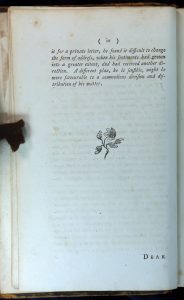 ( iv )
it for a private letter, he found it difficult to change
the form of address, when his sentiments had grown
into a greater extent, and had received another di-
rection. A different plan, he is sensible, might be
more favourable to a commodious division and dis-
tribution of his matter.
DEAR